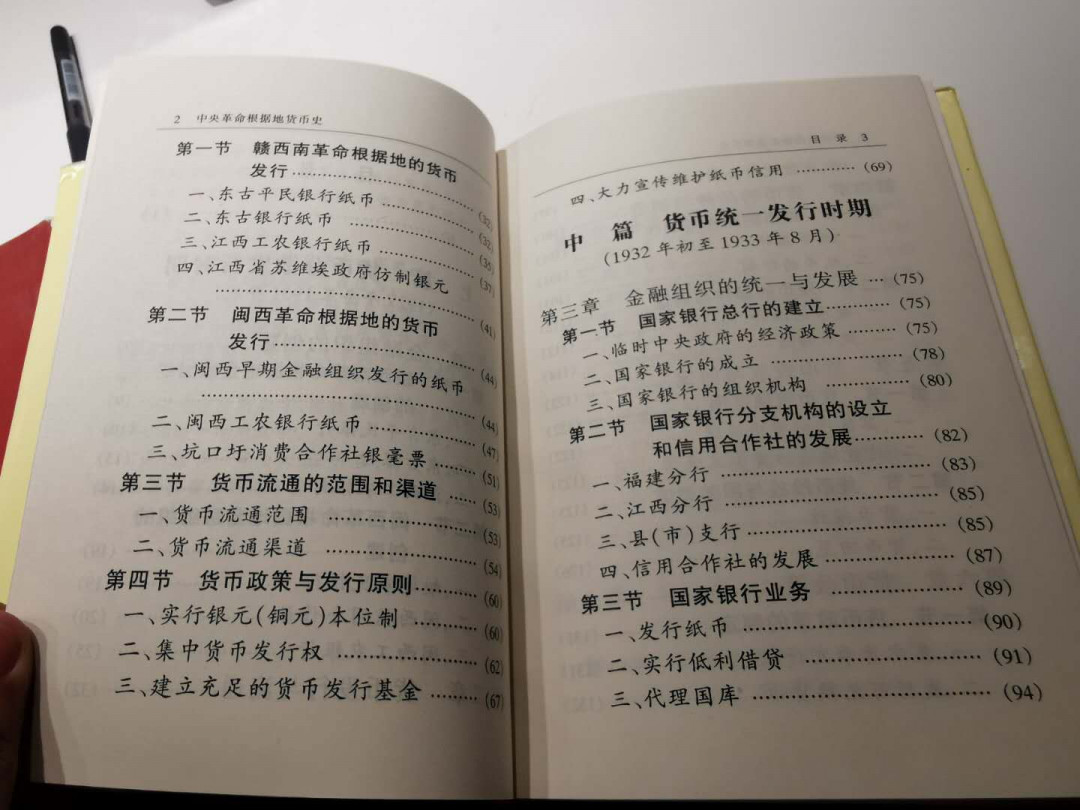 2 中央革命根据地货币史
第一节 赣西南革命根据地的货币
发行……………………(32)
一、东古平民银行纸币 …………(32)
二、东古银行纸币 ………………(35)
三、江西工农银行纸币 …………(37)
四、江西省苏维埃政府仿制银元
……………………………(41)
第二节 闽西革命根据地的货币
发行……………………(44)
一、闽西早期金融组织发行的纸币
……………………………(44)
二、闽西工农银行纸币 …………(47)
三、坑口圩消费合作社银毫票 ……(51)
第三节 货币流通的范围和渠道 ……(53)
一、货币流通范围 ………………(53)
二、货币流通渠道 ………………(54)
第四节 货币政策与发行原则………(60)
一、实行银元(铜元)本位制 ……(60)
二、集中货币发行权 ……………(62)
三、建立充足的货币发行基金 ……(67)
目 录 3
四、大力宣传维护纸币信用 …………(69)
中 篇 货币统一发行时期
(1932 年初至 1933 年 8 月)
第三章 金融组织的统一与发展 …(75)
第一节 国家银行总行的建立…………(75)
一、临时中央政府的经济政策 ………(75)
二、国家银行的成立 ………………(78)
三、国家银行的组织机构 …………(80)
第二节 国家银行分支机构的设立
和信用合作社的发展…………(82)
一、福建分行 ……………………(83)
二、江西分行 ……………………(85)
三、县(市)支行…………………(85)
四、信用合作社的发展 ……………(87)
第三节 国家银行业务 ……………(89)
一、发行纸币 ……………………(90)
二、实行低利借贷 ………………(91)
三、代理国库 ……………………(94)